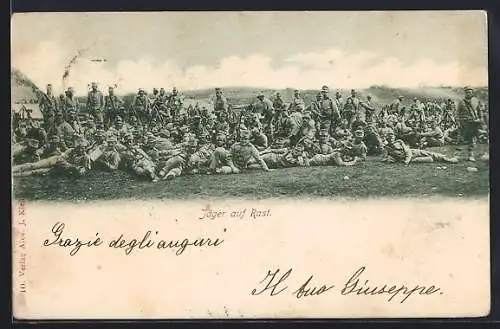 Jäger auf Rast.
Grazie degli auguri
Il tuo Giuseppe.
140. Verlag Alex. J. Klein